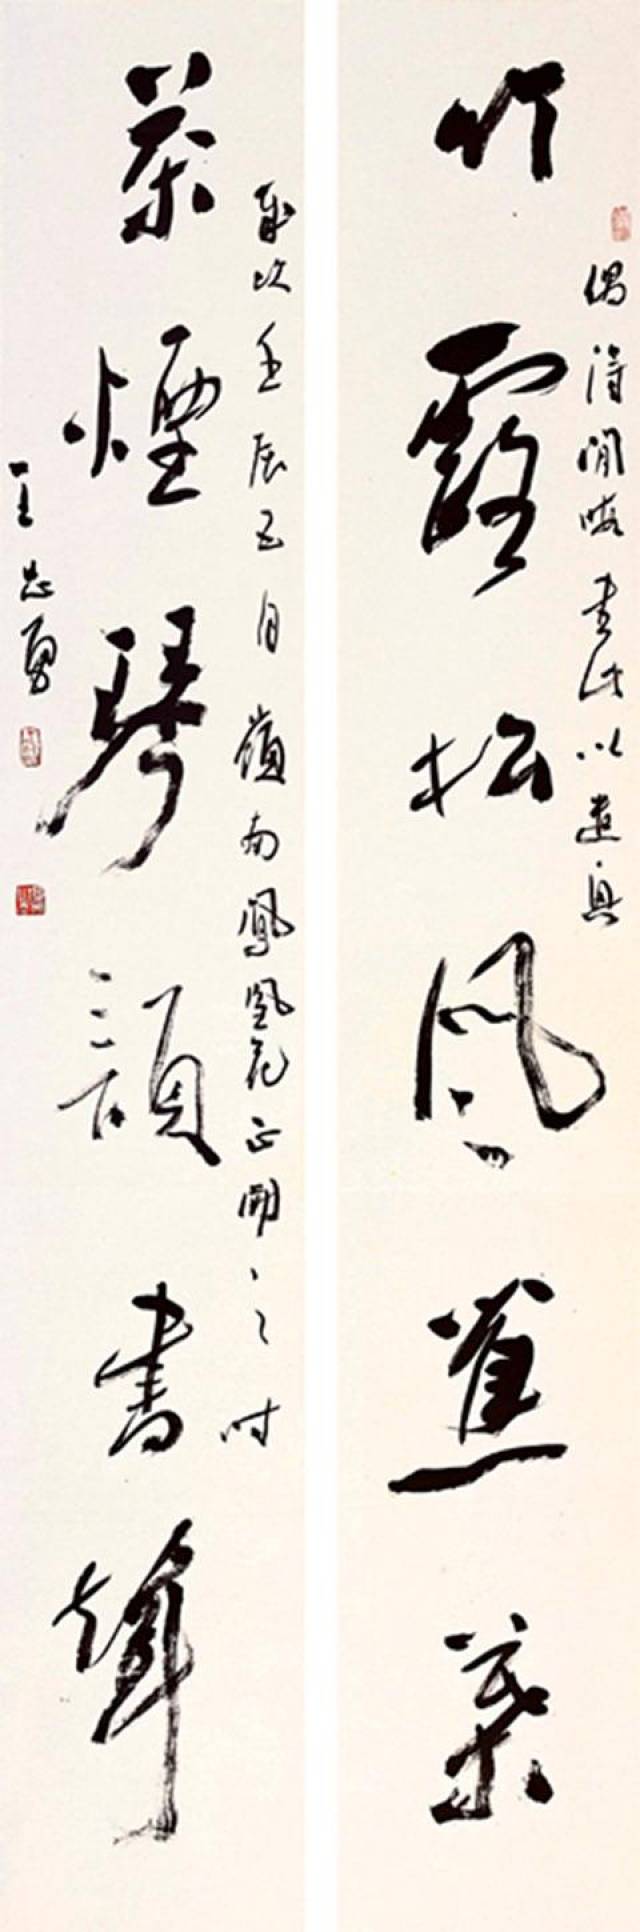 竹露松風蕉葉
偶得閒暇書此以遣興
茶煙琴韻書聲
歲次壬辰五月嶺南鳳凰花正開之時
王志勇